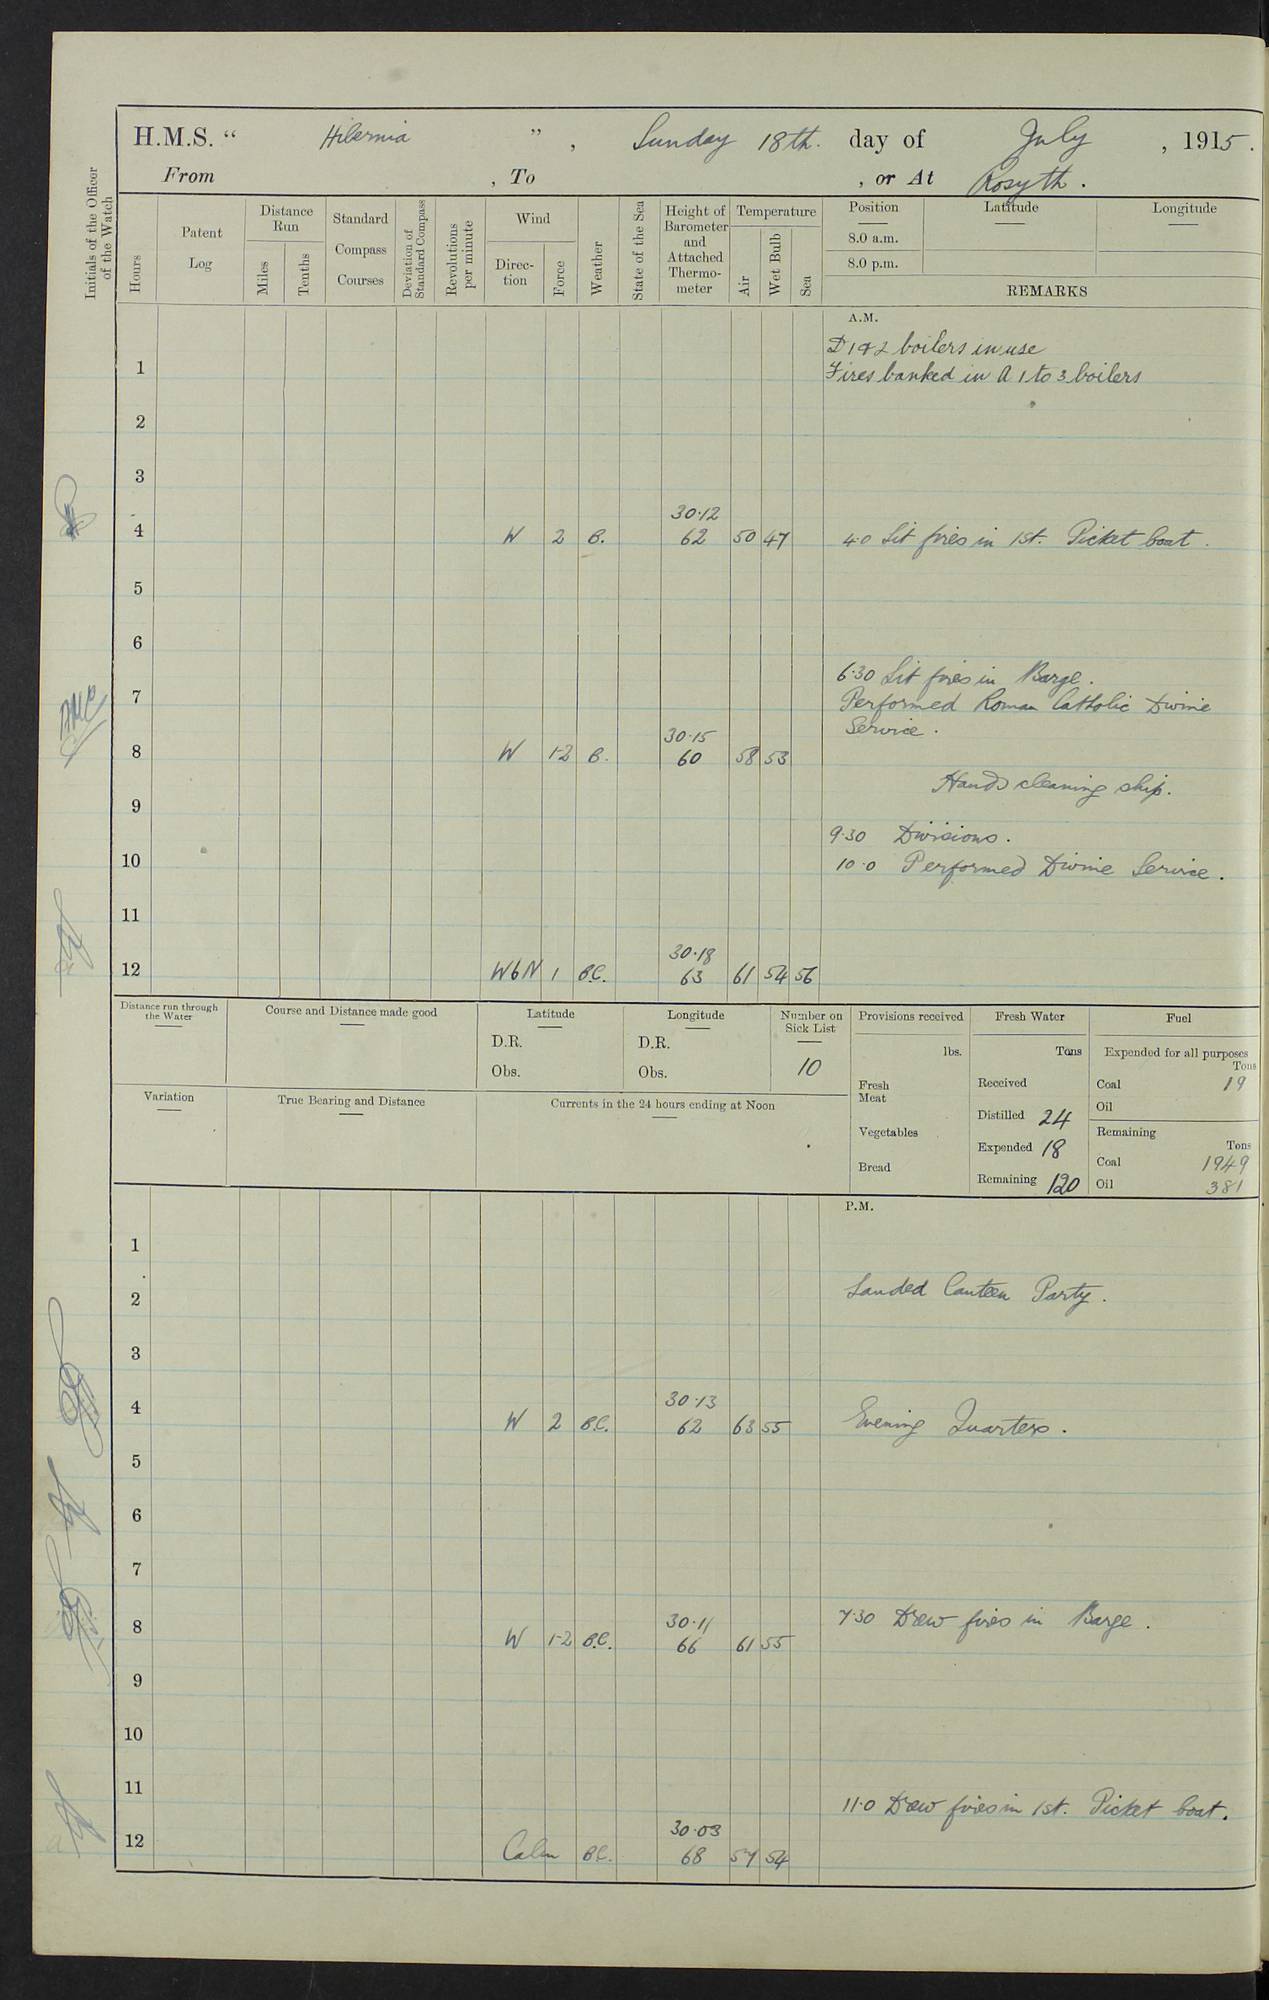 H.M.S. " Hibernia ", Sunday 18th. day of July, 1915.
From , To , or At Rosyth.
Initials of the Officer of the Watch
Hours
Patent Log
Distance Run
Miles
Tenths
Standard Compass Courses
Deviation of Standard Compass
Revolutions per minute
Wind
Direc-tion
Force
Weather
State of the Sea
Height of Barometer and Attached Thermo-meter
Temperature
Air
Wet Bulb
Sea
Position
8.0 a.m.
8.0 p.m.
Latitude
Longitude
REMARKS
A.M.
D 1 & 2 boilers in use
1 Fires banked in A 1 to 3 boilers
2
3
30.12
4 W 2 B. 62 50 47 4.0 Lit fires in 1st. Picket boat.
5
6
6.30 Lit fires in Barge.
7 Performed Roman Catholic Divine
30.15 Service.
8 W 1-2 B. 60 58 53
Hands cleaning ship.
9
9.30 Divisions.
10 10.0 Performed Divine Service.
11
30.18
12 WbN 1 B.C. 63 61 54 56
Distance run through the Water
Course and Distance made good
Latitude
D.R.
Obs.
Longitude
D.R.
Obs.
Number on Sick List
10
Provisions received
lbs.
Fresh Meat
Vegetables
Bread
Fresh Water
Tons
Received
Distilled 24
Expended 18
Remaining 120
Fuel
Expended for all purposes
Tons
Coal 19
Oil
Remaining
Tons
Coal 1949
Oil 381
Variation
True Bearing and Distance
Currents in the 24 hours ending at Noon
P.M.
1
2 Landed Canteen Party.
3
30.13
4 W 2 B.C. 62 63 55 Evening Quarters.
5
6
7
30.11 7.30 Drew fires in Barge.
8 W 1-2 B.C. 66 61 55
9
10
11 11.0 Drew fires in 1st. Picket boat.
30.03
12 Calm B.C. 68 57 54